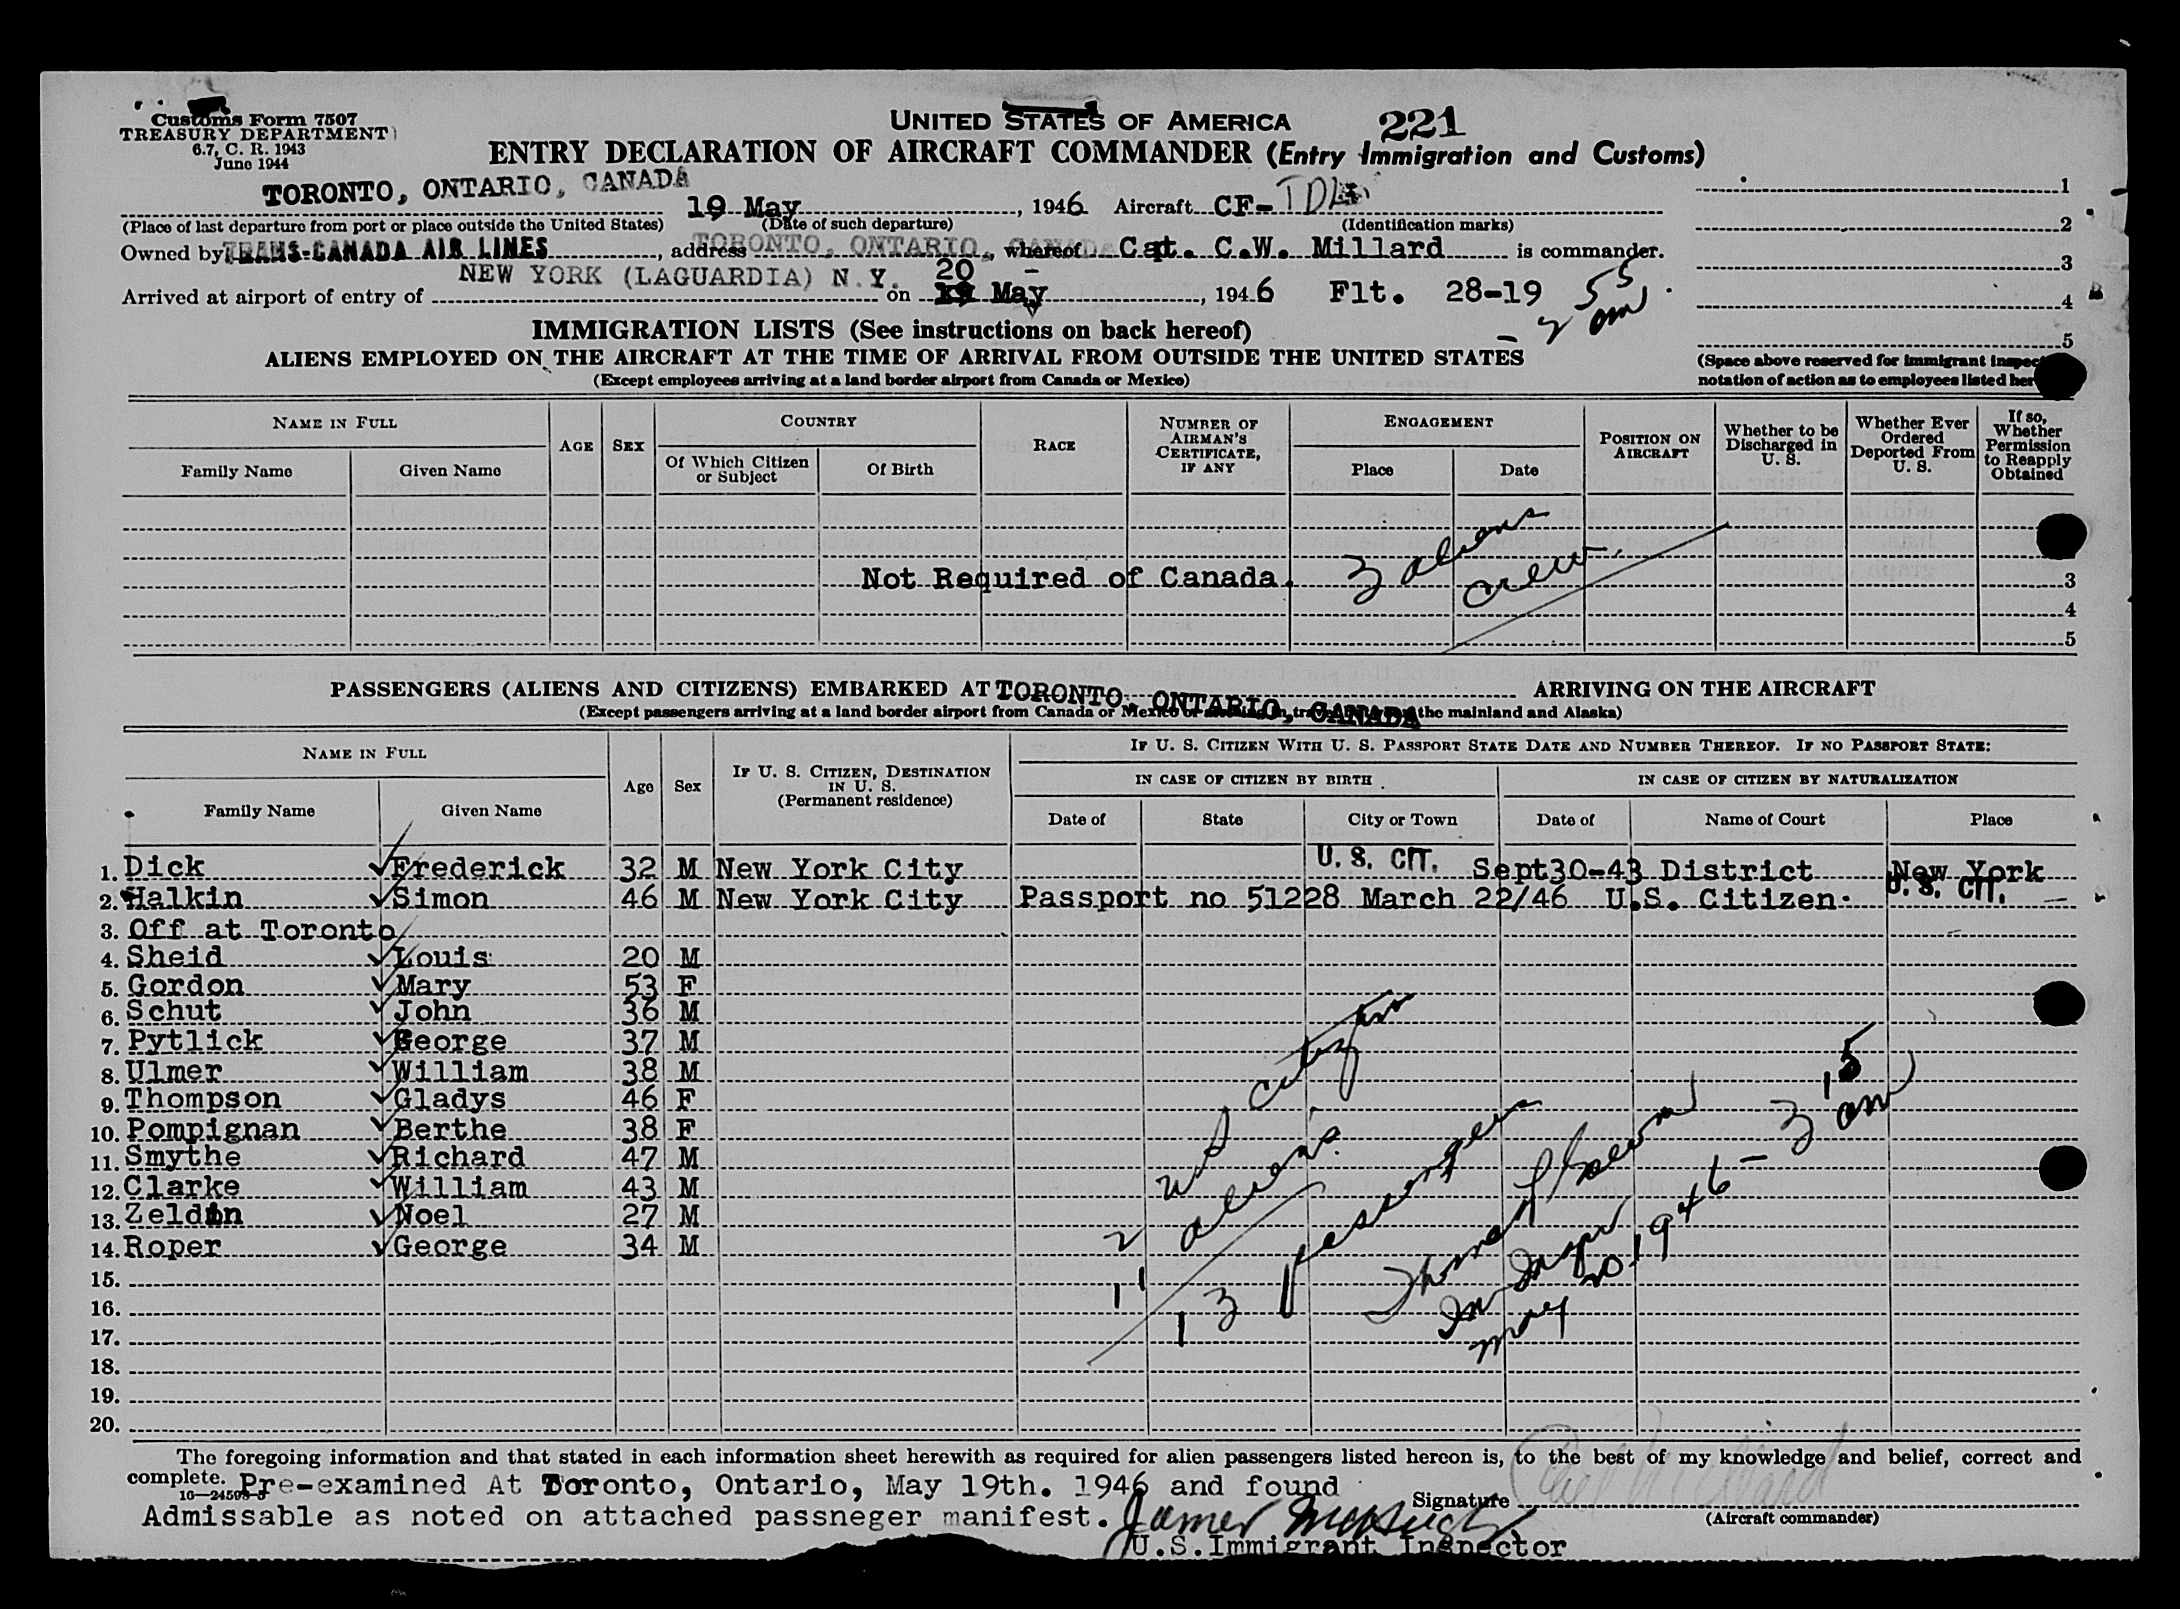 Customs Form 7507
TREASURY DEPARTMENT
6.7, C. R. 1943
June 1944
UNITED STATES OF AMERICA
221
ENTRY DECLARATION OF AIRCRAFT COMMANDER (Entry Immigration and Customs)
TORONTO, ONTARIO, CANADA 19 May, 1946 Aircraft CF-
(Place of last departure from port or place outside the United States) (Date of such departure) (Identification marks)
Owned by TRANS-CANADA AIR LINES, address TORONTO, ONTARIO, CANADA, whereof Cpt. C.W. Millard is commander.
Arrived at airport of entry of NEW YORK (LAGUARDIA) N.Y. on 20 May, 1946 Flt. 28-19
- 2 55 am
1
2
3
4
5
IMMIGRATION LISTS (See instructions on back hereof)
ALIENS EMPLOYED ON THE AIRCRAFT AT THE TIME OF ARRIVAL FROM OUTSIDE THE UNITED STATES
(Except employees arriving at a land border airport from Canada or Mexico)
(Space above reserved for immigrant
notation of action as to employees listed
NAME IN FULL
Family Name
Given Name
AGE
SEX
COUNTRY
Of Which Citizen or Subject
Of Birth
RACE
NUMBER OF AIRMAN'S CERTIFICATE, IF ANY
ENGAGEMENT
Place
Date
POSITION ON AIRCRAFT
Whether to be Discharged in U. S.
Whether Ever Ordered Deported From U. S.
If so, Whether Permission to Reapply Obtained
Not Required of Canada.
3 aliens
crew
3
4
5
PASSENGERS (ALIENS AND CITIZENS) EMBARKED AT TORONTO, ONTARIO, CANADA ARRIVING ON THE AIRCRAFT
(Except passengers arriving at a land border airport from Canada or Mexico or the mainland and Alaska)
NAME IN FULL
Family Name
Given Name
Age
Sex
IF U. S. CITIZEN, DESTINATION IN U. S.
(Permanent residence)
IF U. S. CITIZEN WITH U. S. PASSPORT STATE DATE AND NUMBER THEREOF. IF NO PASSPORT STATE:
IN CASE OF CITIZEN BY BIRTH
IN CASE OF CITIZEN BY NATURALIZATION
Date of
State
City or Town
Date of
Name of Court
Place
1. Dick Frederick 32 M New York City U. S. CIT. Sept30-43 District New York
2. Halkin Simon 46 M New York City Passport no 51228 March 22/46 U.S. Citizen U. S. CIT.
3. Off at Toronto
4. Sheid Louis 20 M
5. Gordon Mary 53 F
6. Schut John 36 M
7. Pytlick George 37 M
8. Ulmer William 38 M
9. Thompson Gladys 46 F
10. Pompignan Berthe 38 F
11. Smythe Richard 47 M
12. Clarke William 43 M
13. Zeldin Noel 27 M
14. Roper George 34 M
15.
16.
17.
18.
19.
20.
2 US citizen
11 aliens
13 passengers
May 20 1946 - 3 15 am
The foregoing information and that stated in each information sheet herewith as required for alien passengers listed hereon is, to the best of my knowledge and belief, correct and
complete. Pre-examined At Toronto, Ontario, May 19th. 1946 and found
Admissable as noted on attached passneger manifest.
Signature
(Aircraft commander)
U.S.Immigrant Inspector